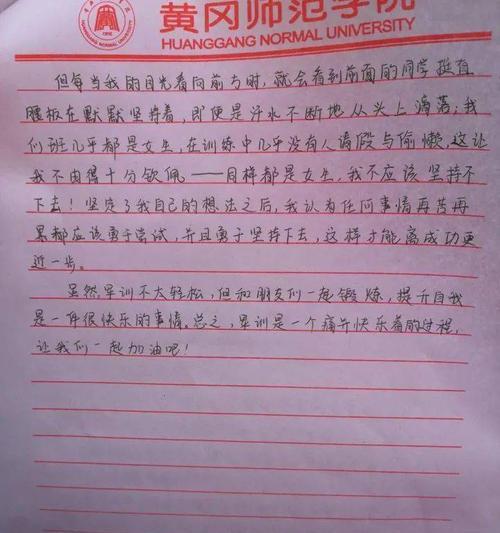 黄冈师范学院
HUANGGANG NORMAL UNIVERSITY
但每当我的目光看向前方时，就会看到前面的同学挺直
腰板在默默坚持着，即便是汗水不断地从头上滴落；我
们班几乎都是女生，在训练中几乎没有人请假与偷懒，这让
我不由得十分钦佩——同样都是女生，我不应该坚持不
下去！坚定了我自己的想法之后，我认为任何事情再苦再
累都应该勇于尝试，并且勇于坚持下去，这样才能离成功更
近一步。
虽然早训不大轻松，但和朋友们一起锻炼，提升自我
是一件很快乐的事情。总之，早训是一个痛并快乐着的过程，
让我们一起加油吧！